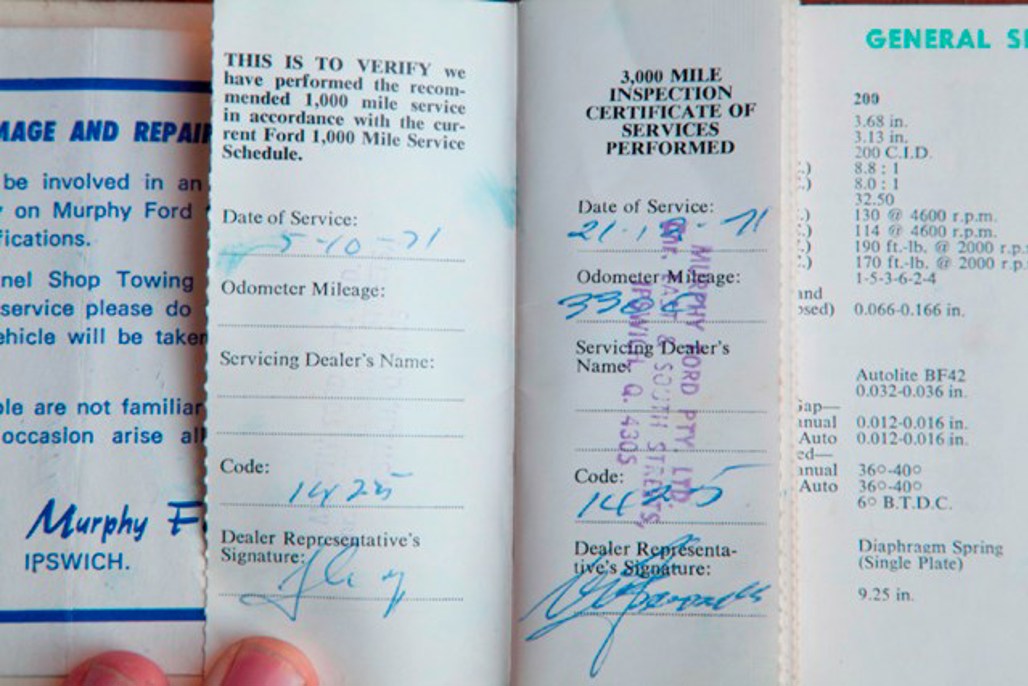 MAGE AND REPAIR
be involved in an
on Murphy Ford
fications.
nel Shop Towing
service please do
ehicle will be taken
ple are not familiar
occasion arise all
Murphy F
IPSWICH.
THIS IS TO VERIFY we
have performed the recom-
mended 1,000 mile service
in accordance with the cur-
rent Ford 1,000 Mile Service
Schedule.
Date of Service:
5-10-71
Odometer Mileage:
Servicing Dealer's Name:
Code:
1425
Dealer Representative's
Signature:
3,000 MILE
INSPECTION
CERTIFICATE OF
SERVICES
PERFORMED
Date of Service:
Odometer Mileage:
Servicing Dealer's
Name:
Code:
1425
Dealer Representa-
tive's Signature:
MURPHY FORD PTY. LTD.
Cnr. EAST & SOUTH STREETS,
IPSWICH, Q. 4305
GENERAL S
200
3.68 in.
3.13 in.
200 C.I.D.
.) 8.8 : 1
.) 8.0 : 1
32.50
.) 130 @ 4600 r.p.m.
.) 114 @ 4600 r.p.m.
.) 190 ft.-lb. @ 2000 r.p.
.) 170 ft.-lb. @ 2000 r.p.
1-5-3-6-2-4
and
osed) 0.066-0.166 in.
Autolite BF42
0.032-0.036 in.
Gap—
anual 0.012-0.016 in.
Auto 0.012-0.016 in.
ed—
anual 36°-40°
Auto 36°-40°
6° B.T.D.C.
Diaphragm Spring
(Single Plate)
9.25 in.